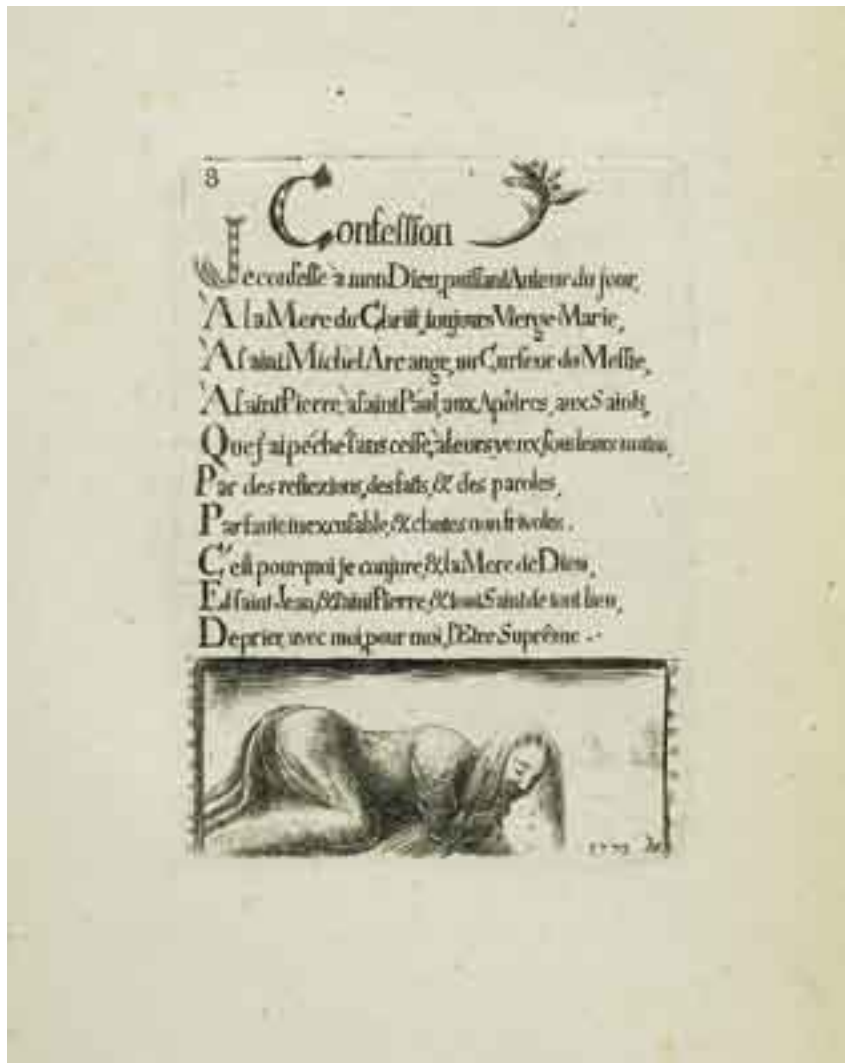 8
Confession
Je confesse à mon Dieu, puissant Auteur du jour,
À la Mere du Christ, toujours Vierge Marie,
À saint Michel Arcange, un Curseur du Messie,
À saint Pierre, à saint Paul, aux Apôtres, aux Saints,
Que j'ai péché sans cesse, à leurs yeux, sous leurs mains,
Par des reflexions, des faits, & des paroles,
Par faute inexcusable, & chutes non frivoles.
C'est pourquoi je conjure, & la Mere de Dieu,
Et saint Jean, & saint Pierre, & tout Saint de tout lieu,
De prier, avec moi, pour moi, l'Etre Suprême